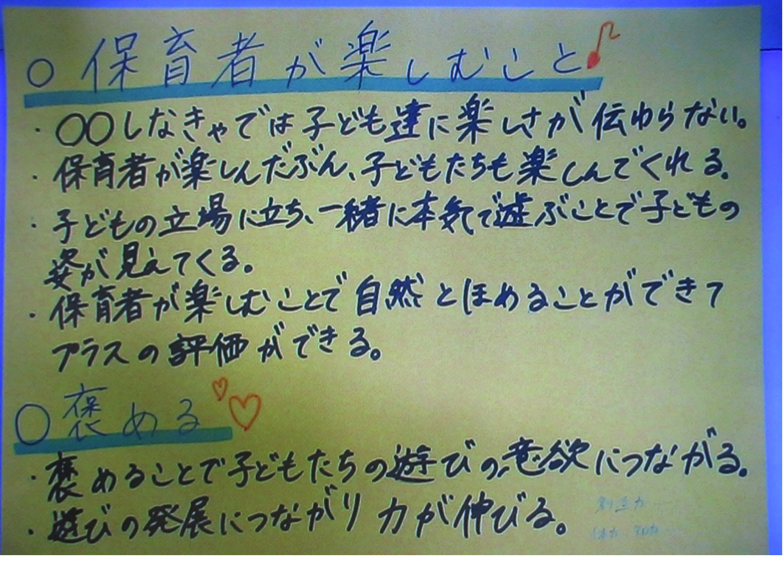 ○ 保育者が楽しむこと♪
・○○しなきゃでは子ども達に楽しさが伝わらない。
・保育者が楽しんだぶん、子どもたちも楽しんでくれる。
・子どもの立場に立ち、一緒に本気で遊ぶことで子どもの
姿が見えてくる。
・保育者が楽しむことで自然とほめることができて
プラスの評価ができる。
○褒める♡♡
・褒めることで子どもたちの遊びの意欲につながる。
・遊びの発展につながり力が伸びる。
創造力
体力 知力